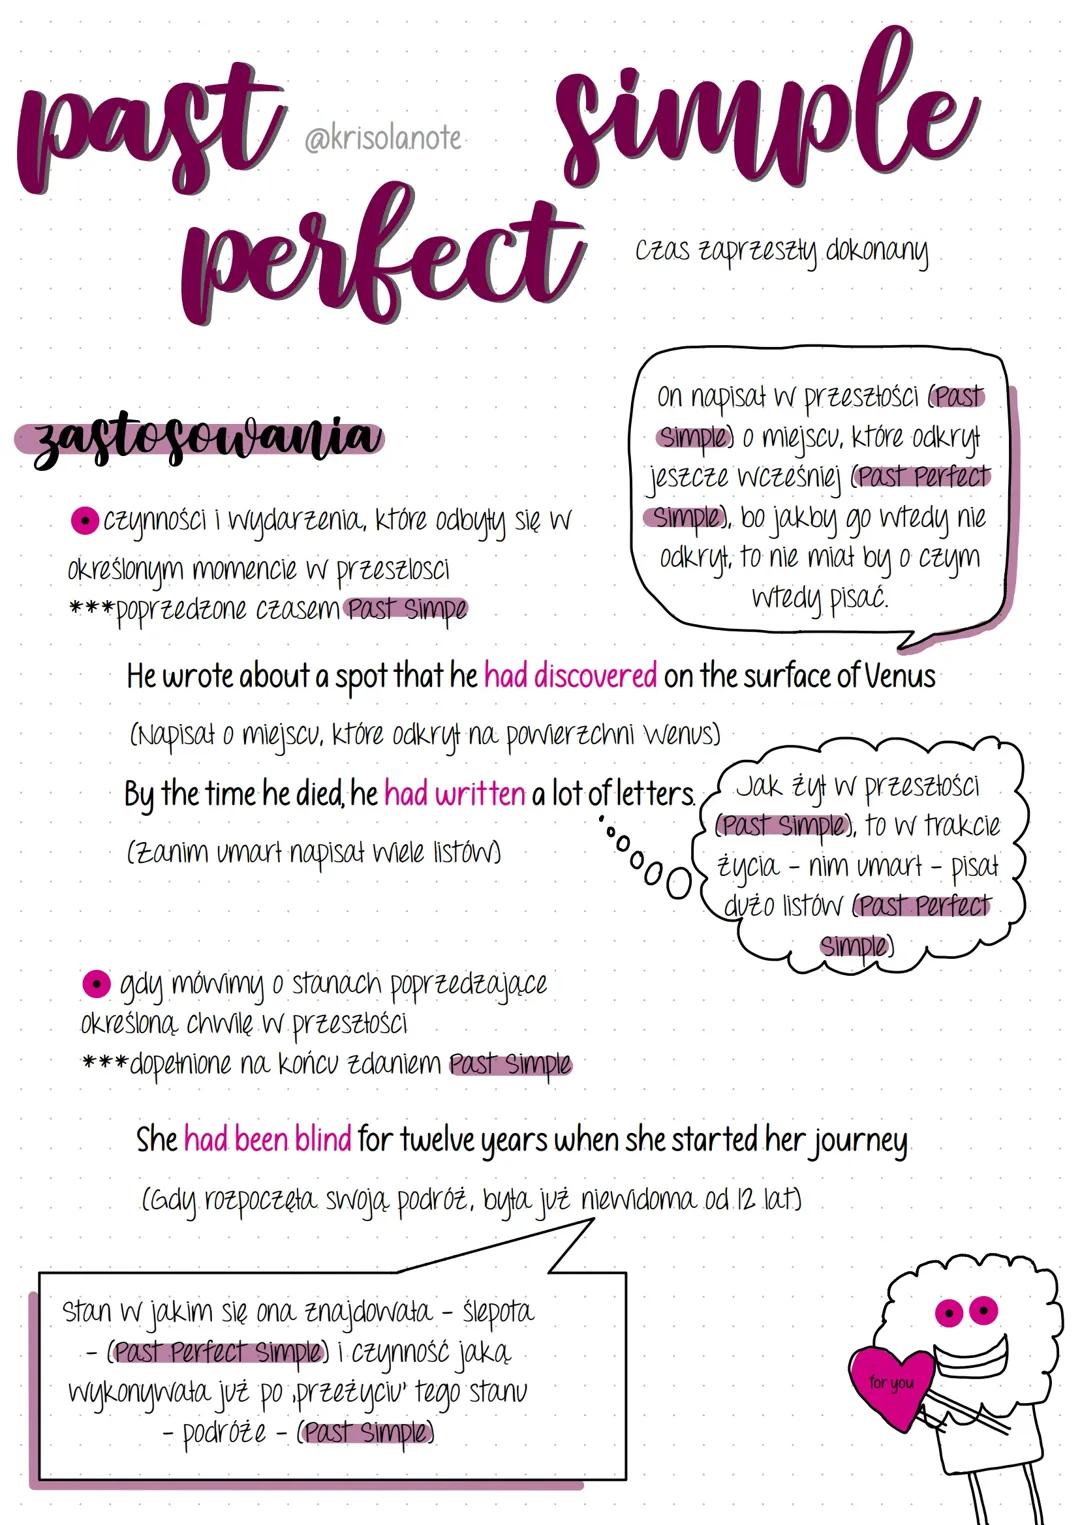 past simple
@krisolanote
perfect
czas zaprzeszły dokonany
zastosowania
On napisał w przeszłości (Past
Simple) o miejscu, które odkrył
jeszcze wcześniej (Past Perfect
Simple), bo jakby go wtedy nie
odkrył, to nie miał by o czym
wtedy pisać.
czynności i wydarzenia, które odbyły się w
określonym momencie w przeszlosci
***poprzedzone czasem Past Simpe
He wrote about a spot that he had discovered on the surface of Venus
(Napisał o miejscu, które odkrył na powierzchni Wenus)
By the time he died, he had written a lot of letters.
(Zanim umarł napisał wiele listów)
Jak żył w przeszłości
(Past Simple), to w trakcie
życia - nim umarł - pisał
dużo listów (Past Perfect
Simple)
gdy mówimy o stanach poprzedzające
określoną chwilę w przeszłości
***dopełnione na końcu zdaniem Past Simple
She had been blind for twelve years when she started her journey
(Gdy rozpoczęła swoją podróż, była już niewidoma od 12 lat)
Stan w jakim się ona znajdowała - ślepota
- (Past Perfect Simple) i czynność jaką
wykonywała już po ,przeżyciu' tego stanu
- podróże - (Past Simple)
for you